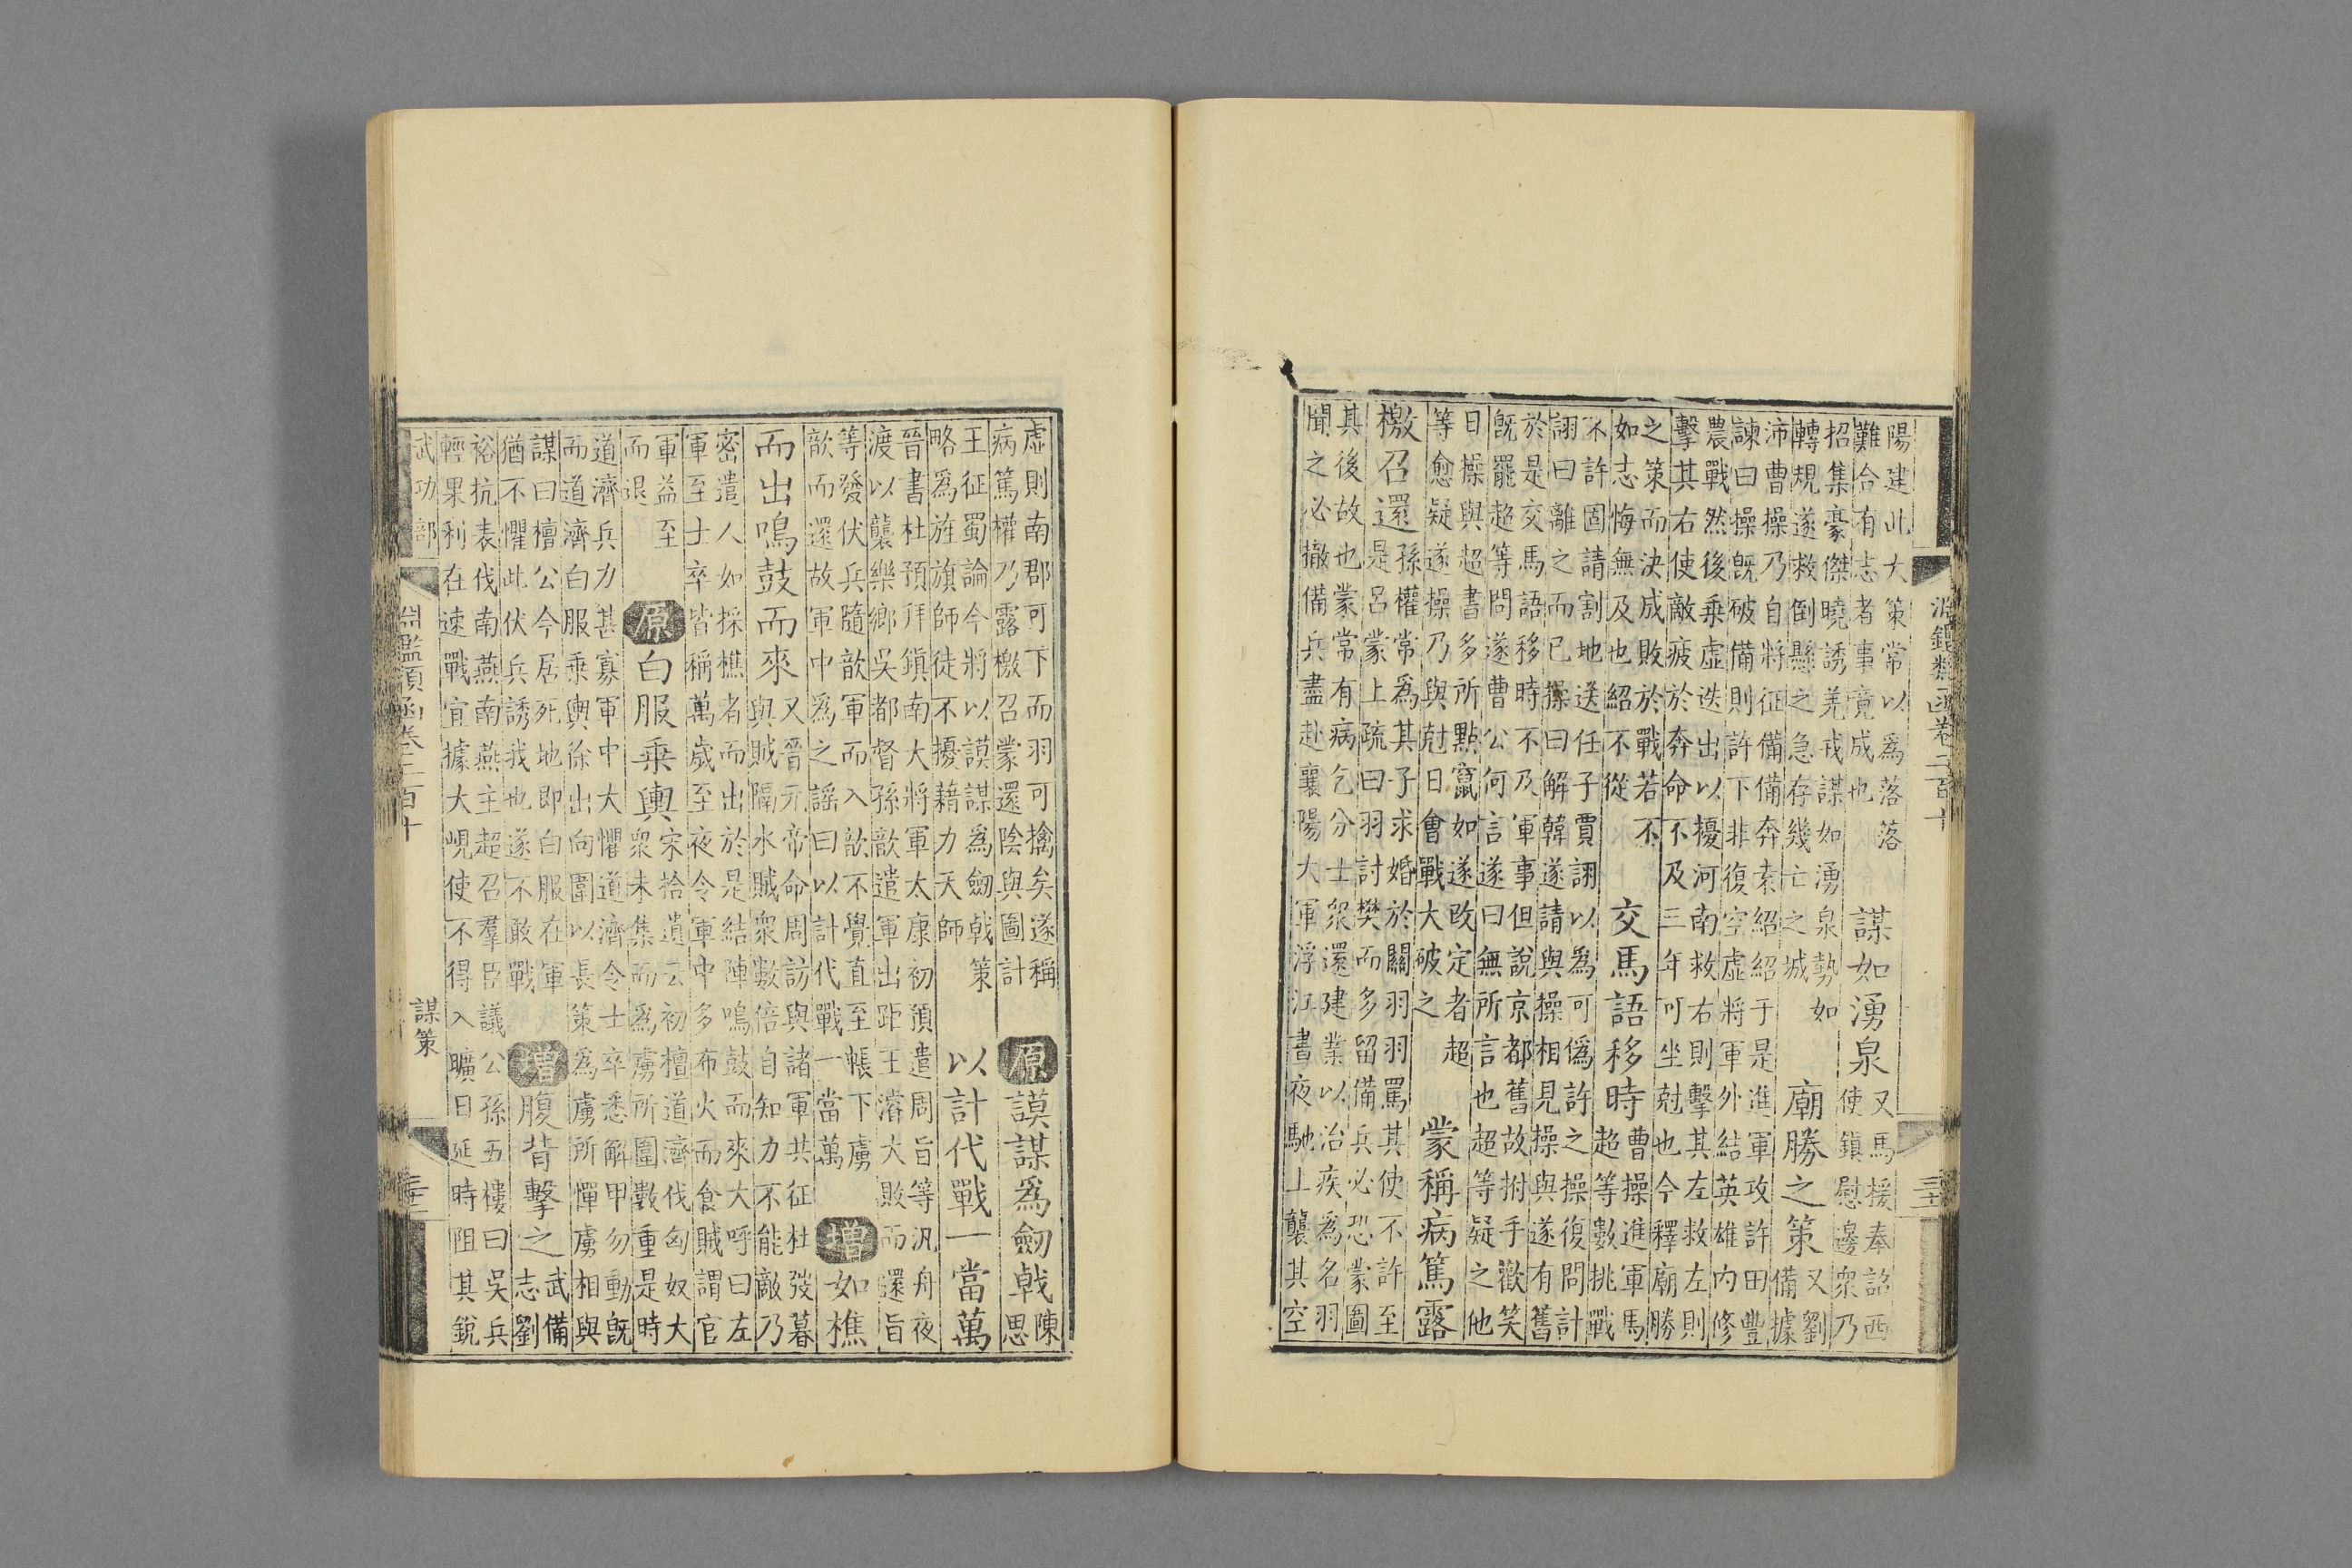 淵鑑類函卷二百十
三十
陽建此大策常以爲落落
難合有志者事竟成也
謀如湧泉
又馬援奉詔西
使鎮慰邊衆乃
招集豪傑曉誘羌戎謀如湧泉勢如
轉規遂救倒懸之急存幾亡之城
廟勝之策
又劉
備據
沛曹操乃自將征備備奔袁紹紹于是進軍攻許田豐
諫曰操既破備則許下非復空虛將軍外結英雄内修
農戰然後乗虛迭出以擾河南救右則擊其左救左則
擊其右使敵疲於奔命不及三年可坐尅也今釋廟勝
之策而決成敗於戰若不
如志悔無及也紹不從
交馬語移時
曹操進軍馬
超等數挑戰
不許固請割地送任子賈詡以爲可僞許之操復問計
詡曰離之而已操曰解韓遂請與操相見操與遂有舊
於是交馬語移時不及軍事但說京都舊故拊手歡笑
既罷超等問遂曹公何言遂曰無所言也超等疑之他
日操與超書多所點竄如遂改定者超
等愈疑遂操乃與尅日會戰大破之
蒙稱病篤露
檄召還
孫權常爲其子求婚於關羽羽罵其使不許至
是呂蒙上疏曰羽討樊而多留備兵必恐蒙圖
其後故也蒙常有病乞分士衆還建業以治疾爲名羽
聞之必撤備兵盡赴襄陽大軍浮江晝夜馳上襲其空
虛則南郡可下而羽可擒矣遂稱
病篤權乃露檄召蒙還陰與圖計
原
謨謀爲劒戟
陳
思
王征蜀論今將以謨謀爲劒戟策
略爲旌旗師徒不擾藉力天師
以計代戰一當萬
晉書杜預拜鎮南大將軍太康初預遣周旨等汎舟夜
渡以襲樂鄉吳都督孫歆遣軍出距王濬大敗而還旨
等發伏兵隨歆軍而入歆不覺直至帳下虜
歆而還故軍中爲之謡曰以計代戰一當萬
增
如樵
而出鳴鼓而來
又晉元帝命周訪與諸軍共征杜弢暮
與賊隔水賊衆數倍自知力不能敵乃
密遣人如採樵者而出於是結陣鳴鼓而來大呼曰左
軍至士卒皆稱萬歲至夜令軍中多布火而食賊謂官
軍益至
而退
原
白服乗輿
宋拾遺云初檀道濟伐匈奴大
衆未集而爲虜所圍數重是時
道濟兵力甚寡軍中大懼道濟令士卒悉解甲勿動既
而道濟白服乗輿徐出向圍以長策爲虜所憚虜相與
謀曰檀公今居死地即白服在軍
猶不懼此伏兵誘我也遂不敢戰
增
腹背擊之
武備
志劉
裕抗表伐南燕南燕主超召羣臣議公孫五樓曰吳兵
輕果利在速戰宜據大峴使不得入曠日延時阻其銳
武功部
淵鑑類函卷二百十
謀策